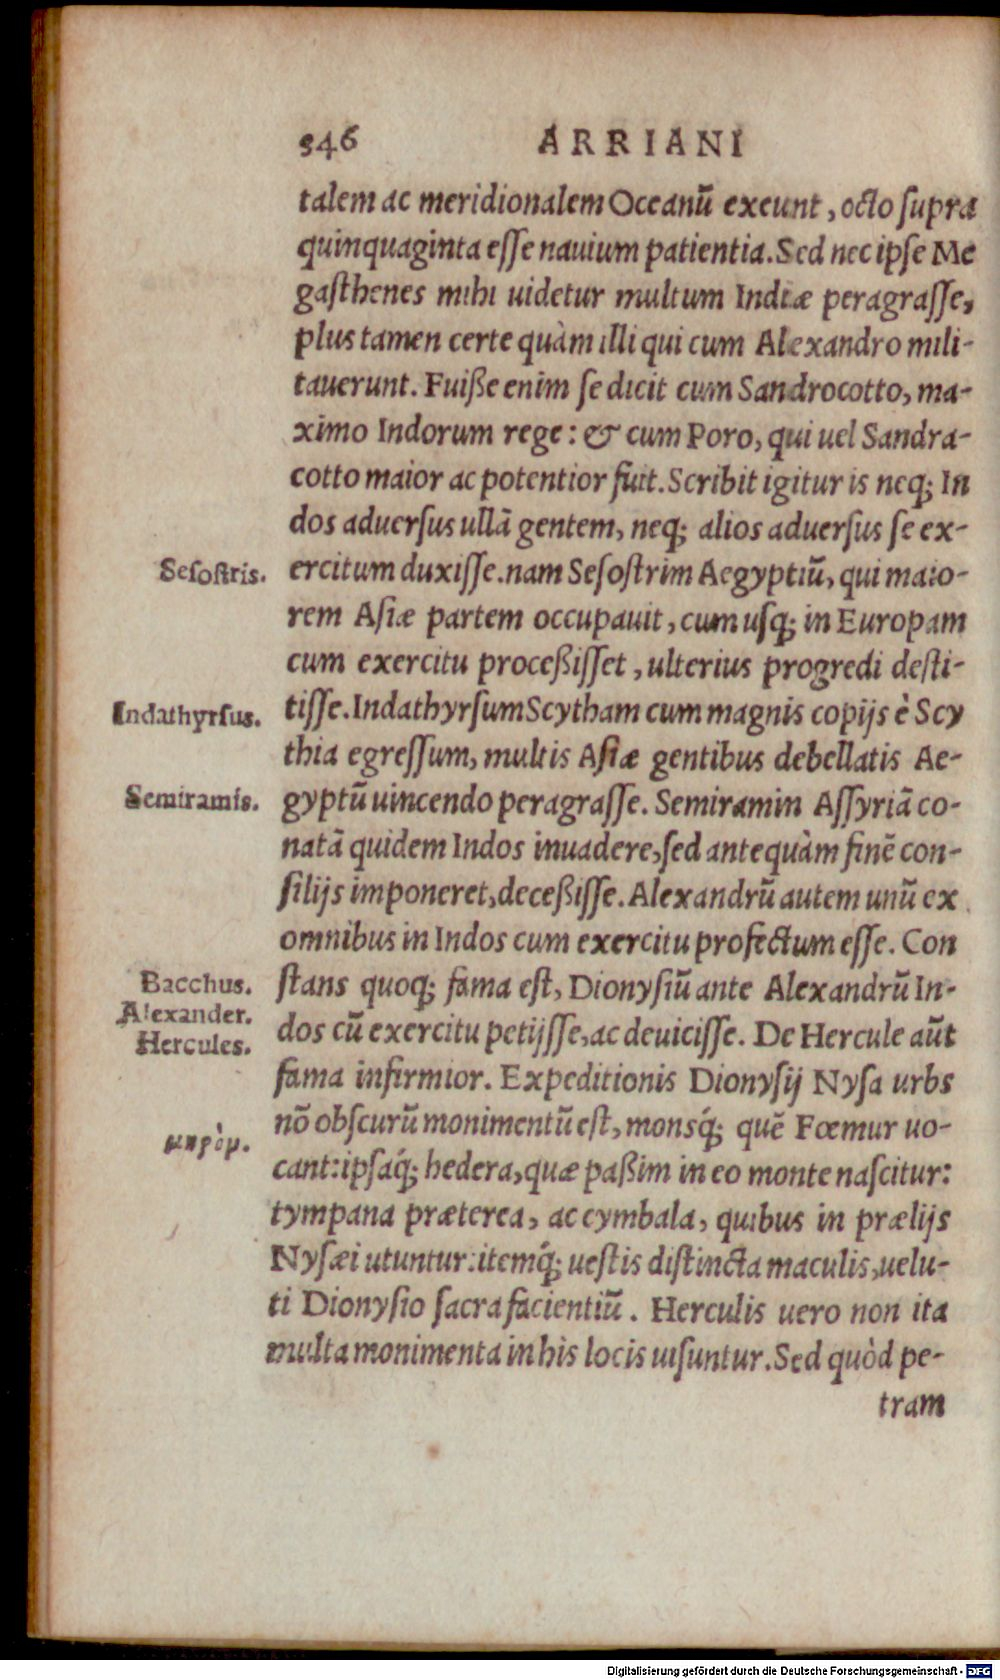 346 ARRIANI
talem ac meridionalem Oceanũ exeunt, octo ſupra
quinquaginta eſſe nauium patientia. Sed nec ipſe Me
gaſthenes mihi uidetur multum Indiæ peragraſſe,
plus tamen certe quàm illi qui cum Alexandro mili-
tauerunt. Fuiße enim ſe dicit cum Sandrocotto, ma-
ximo Indorum rege: & cum Poro, qui uel Sandra-
cotto maior ac potentior fuit. Scribit igitur is neq; In
dos aduerſus ullã gentem, neq; alios aduerſus ſe ex-
Seſoſtris. ercitum duxiſſe. nam Seſoſtrim Aegyptiũ, qui maio-
rem Aſiæ partem occupauit, cum uſq; in Europam
cum exercitu proceßiſſet, ulterius progredi deſti-
Indathyrſus. tiſſe. Indathyrſum Scytham cum magnis copijs è Scy
thia egreſſum, multis Aſiæ gentibus debellatis Ae-
Semiramis. gyptũ uincendo peragraſſe. Semiramin Aſſyriã co-
natã quidem Indos inuadere, ſed antequàm finẽ con-
ſilijs imponeret, deceßiſſe. Alexandrũ autem unũ ex
omnibus in Indos cum exercitu profectum eſſe. Con
Bacchus. ſtans quoq; fama eſt, Dionyſiũ ante Alexandrũ In-
Alexander.
Hercules. dos cũ exercitu petijſſe, ac deuiciſſe. De Hercule aũt
fama infirmior. Expeditionis Dionyſij Nyſa urbs
nõ obſcurũ monimentũ eſt, monsq́; quẽ Fœmur uo-
μηρὸμ. cant: ipſaq́; hedera, quæ paßim in eo monte naſcitur:
tympana præterea, ac cymbala, quibus in prælijs
Nyſæi utuntur: itemq́; ueſtis diſtincta maculis, uelu-
ti Dionyſio ſacra facientiũ. Herculis uero non ita
multa monimenta in his locis uiſuntur. Sed quòd pe-
tram
Digitalisierung gefördert durch die Deutsche Forschungsgemeinschaft - DFG